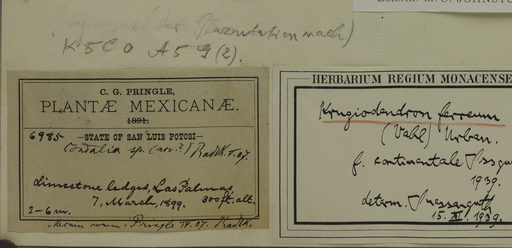 K5 C0 A5 G(2).
C. G. PRINGLE,
PLANTÆ MEXICANÆ.
1891.
6985
STATE OF SAN LUIS POTOSI
Condalia sp. Radlk. V. 07.
Limestone ledges, Las Palmas,
7, March, 1899. 300 ft. alt.
2-6 m.
Pringle IV. 07. Radlk.
HERBARIUM REGIUM MONACENSE
Krugiodendron ferreum
(Vahl) Urban.
f. continentale
1939.
determ. Suessenguth
15. XI. 1939.